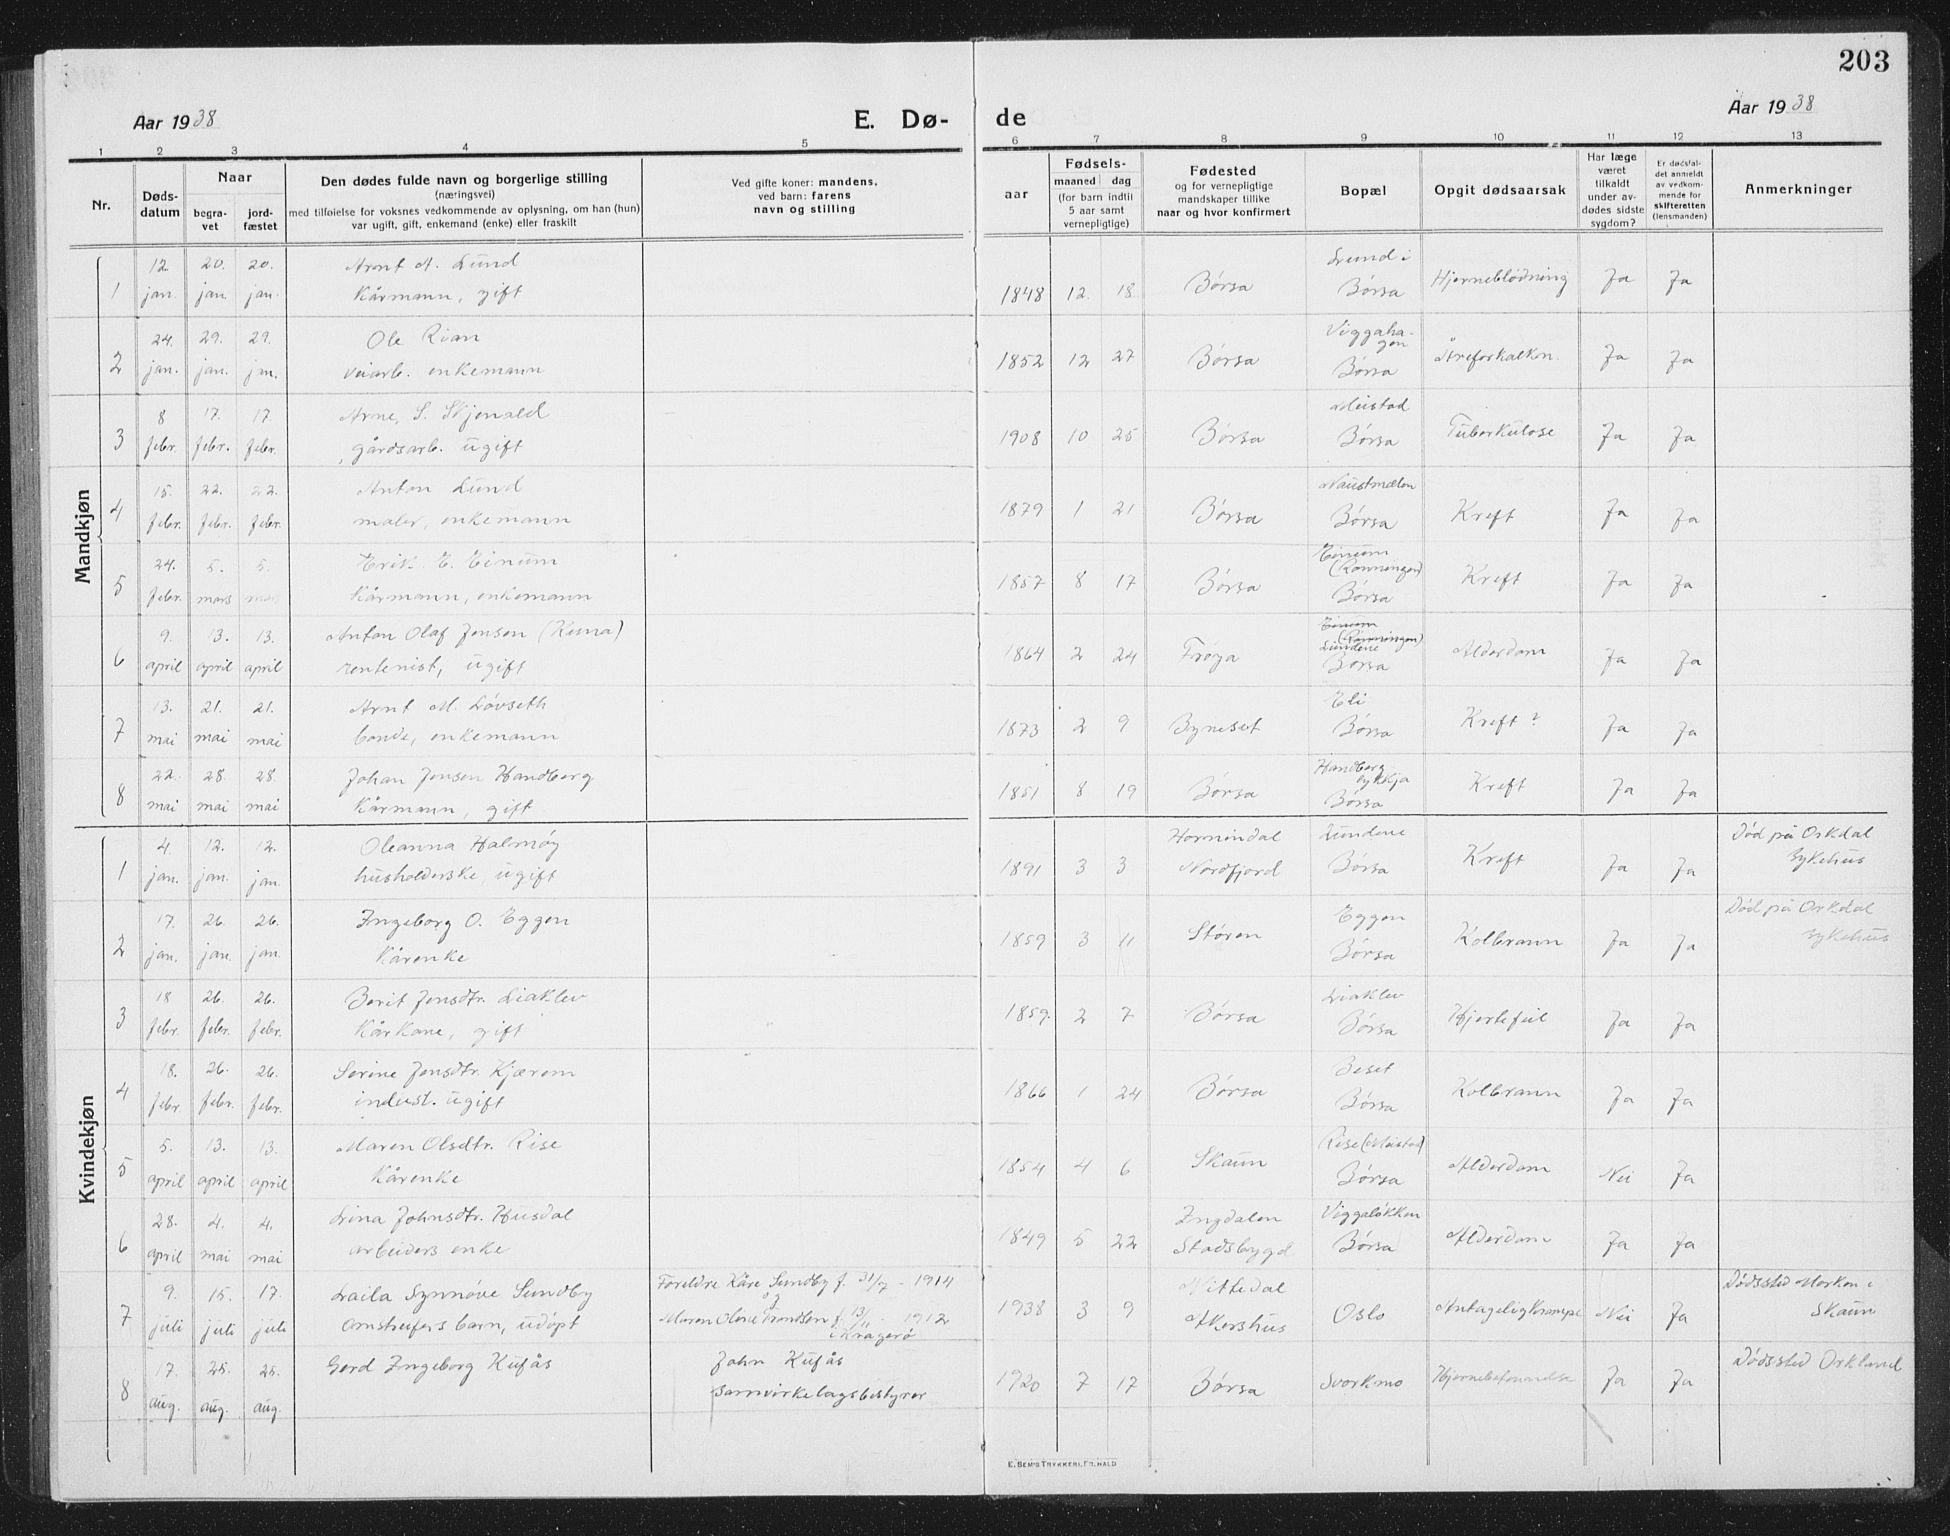 203
Aar 1938
E. Dø-
de
Aar 1938
1 2 3 4 5 6 7 8 9 10 11 12 13
Nr.
Døds-
datum
Naar
begra-
vet
jord-
fæstet
Den dødes fulde navn og borgerlige stilling
(næringsvei)
med tilføielse for voksnes vedkommende av oplysning, om han (hun)
var ugift, gift, enkemand (enke) eller fraskilt
Ved gifte koner: mandens,
ved barn: farens
navn og stilling
aar
Fødsels-
maaned dag
(for barn indtil
5 aar samt
vernepligtige)
Fødested
og for vernepligtige
mandskaper tillike
naar og hvor konfirmert
Bopæl
Opgit dødsaarsak
Har læge
været
tilkaldt
under av-
dødes sidste
sygdom?
Er dødsfal-
det anmeldt
av vedkom-
mende for
skifteretten
(lensmanden)
Anmerkninger
Mandkjøn
12. 20. 20. Arnt A. Lund Lund i
1 jan. jan. jan. Kårmann, gift 1848 12. 18 Børsa Børsa Hjerneblødning Ja Ja
24. 29. 29. Ole Rian Viggaha-
gen
2 jan. jan. jan. veiarb. enkemann 1852 12 27 Børsa Børsa Åreforkalken. Ja Ja
8 17. 17. Arne, S. Skjenald Meistad
3 febr. febr. febr. gårdsarb. ugift 1908 10 25 Børsa Børsa Tuberkulose Ja Ja
15. 22. 22. Anton Lund Naustmælen
4 febr. febr. febr. maler, enkemann 1879 1 21 Børsa Børsa Kreft Ja Ja
24. 5. 5. Erik E. Einum Einum
(Rønningen)
5 febr. mars mars Kårmann, enkemann 1857 8 17 Børsa Børsa Kreft Ja Ja
9. 13. 13. Anton Olaf Jensen (Kuna) Einum
(Rønningen)
Lundene
6 april april april rentenist, ugift 1864 2 24 Frøya Børsa Alderdom Ja Ja
13. 21. 21. Arnt M. Løvseth Eli
7 mai mai mai bonde, enkemann 1873 2 9 Byneset Børsa Kreft? Ja Ja
22. 28. 28. Johan Jensen Handberg Handberg
8 mai mai mai Kårmann, gift 1851 8 19 Børsa Børsa Kreft Ja Ja
Kvindekjøn
4. 12. 12. Oleanna Halmøy Hornindal Lundene Død på Orkdal
1 jan. jan. jan. husholderske, ugift 1891 3 3 Nordfjord Børsa Kreft Ja Ja sykehus
17. 26. 26. Ingeborg O. Eggen Eggen Død på Orkdal
2 jan. jan. jan. Kårenke 1859 3 11 Støren Børsa Kolbrann Ja Ja sykehus
18 26. 26. Berit Jensdtr. Liaklev Liaklev
3 febr. febr. febr. Kårkone, gift 1859. 2 7 Børsa Børsa Hjertefeil Ja Ja
18. 26. 26. Serine Jensdtr. Kjærem Beset
4 febr. febr. febr. indust. ugift 1866 1 24 Børsa Børsa Kolbrann Ja Ja
5. 13. 13. Maren Olsdtr. Rise Rise (Meistad)
5 april april april Kårenke 1854 4 6 Skaun Børsa Alderdom Nei Ja
28. 4. 4. Lina Johnsdtr. Husdal Ingdalen Viggaløkken
6 april mai mai arbeiders enke 1849 5 22 Stadsbygd Børsa Alderdom Ja Ja
9. 15. 17. Laila Synnøve Sundby Foreldre Kåre Sundby f. 31/7 - 1914 Nittedal Dødssted Morken i
og
7 juli juli juli omstreifers barn, udøpt Maren Olene Trondsen f. 13/11 - 1912 1938 3 9 Akershus Oslo Antagelig Krampe Nei Ja Skaun
Kragerø
17. 25. 25. Gerd Ingeborg Kufås John Kufås Dødssted Orkland
8 aug. aug. aug. samvirkelagsbestyrer 1920 7 17 Børsa Svorkmo Hjernebetennelse Ja Ja
E. SEM'S TRYKKERI, FR.HALD